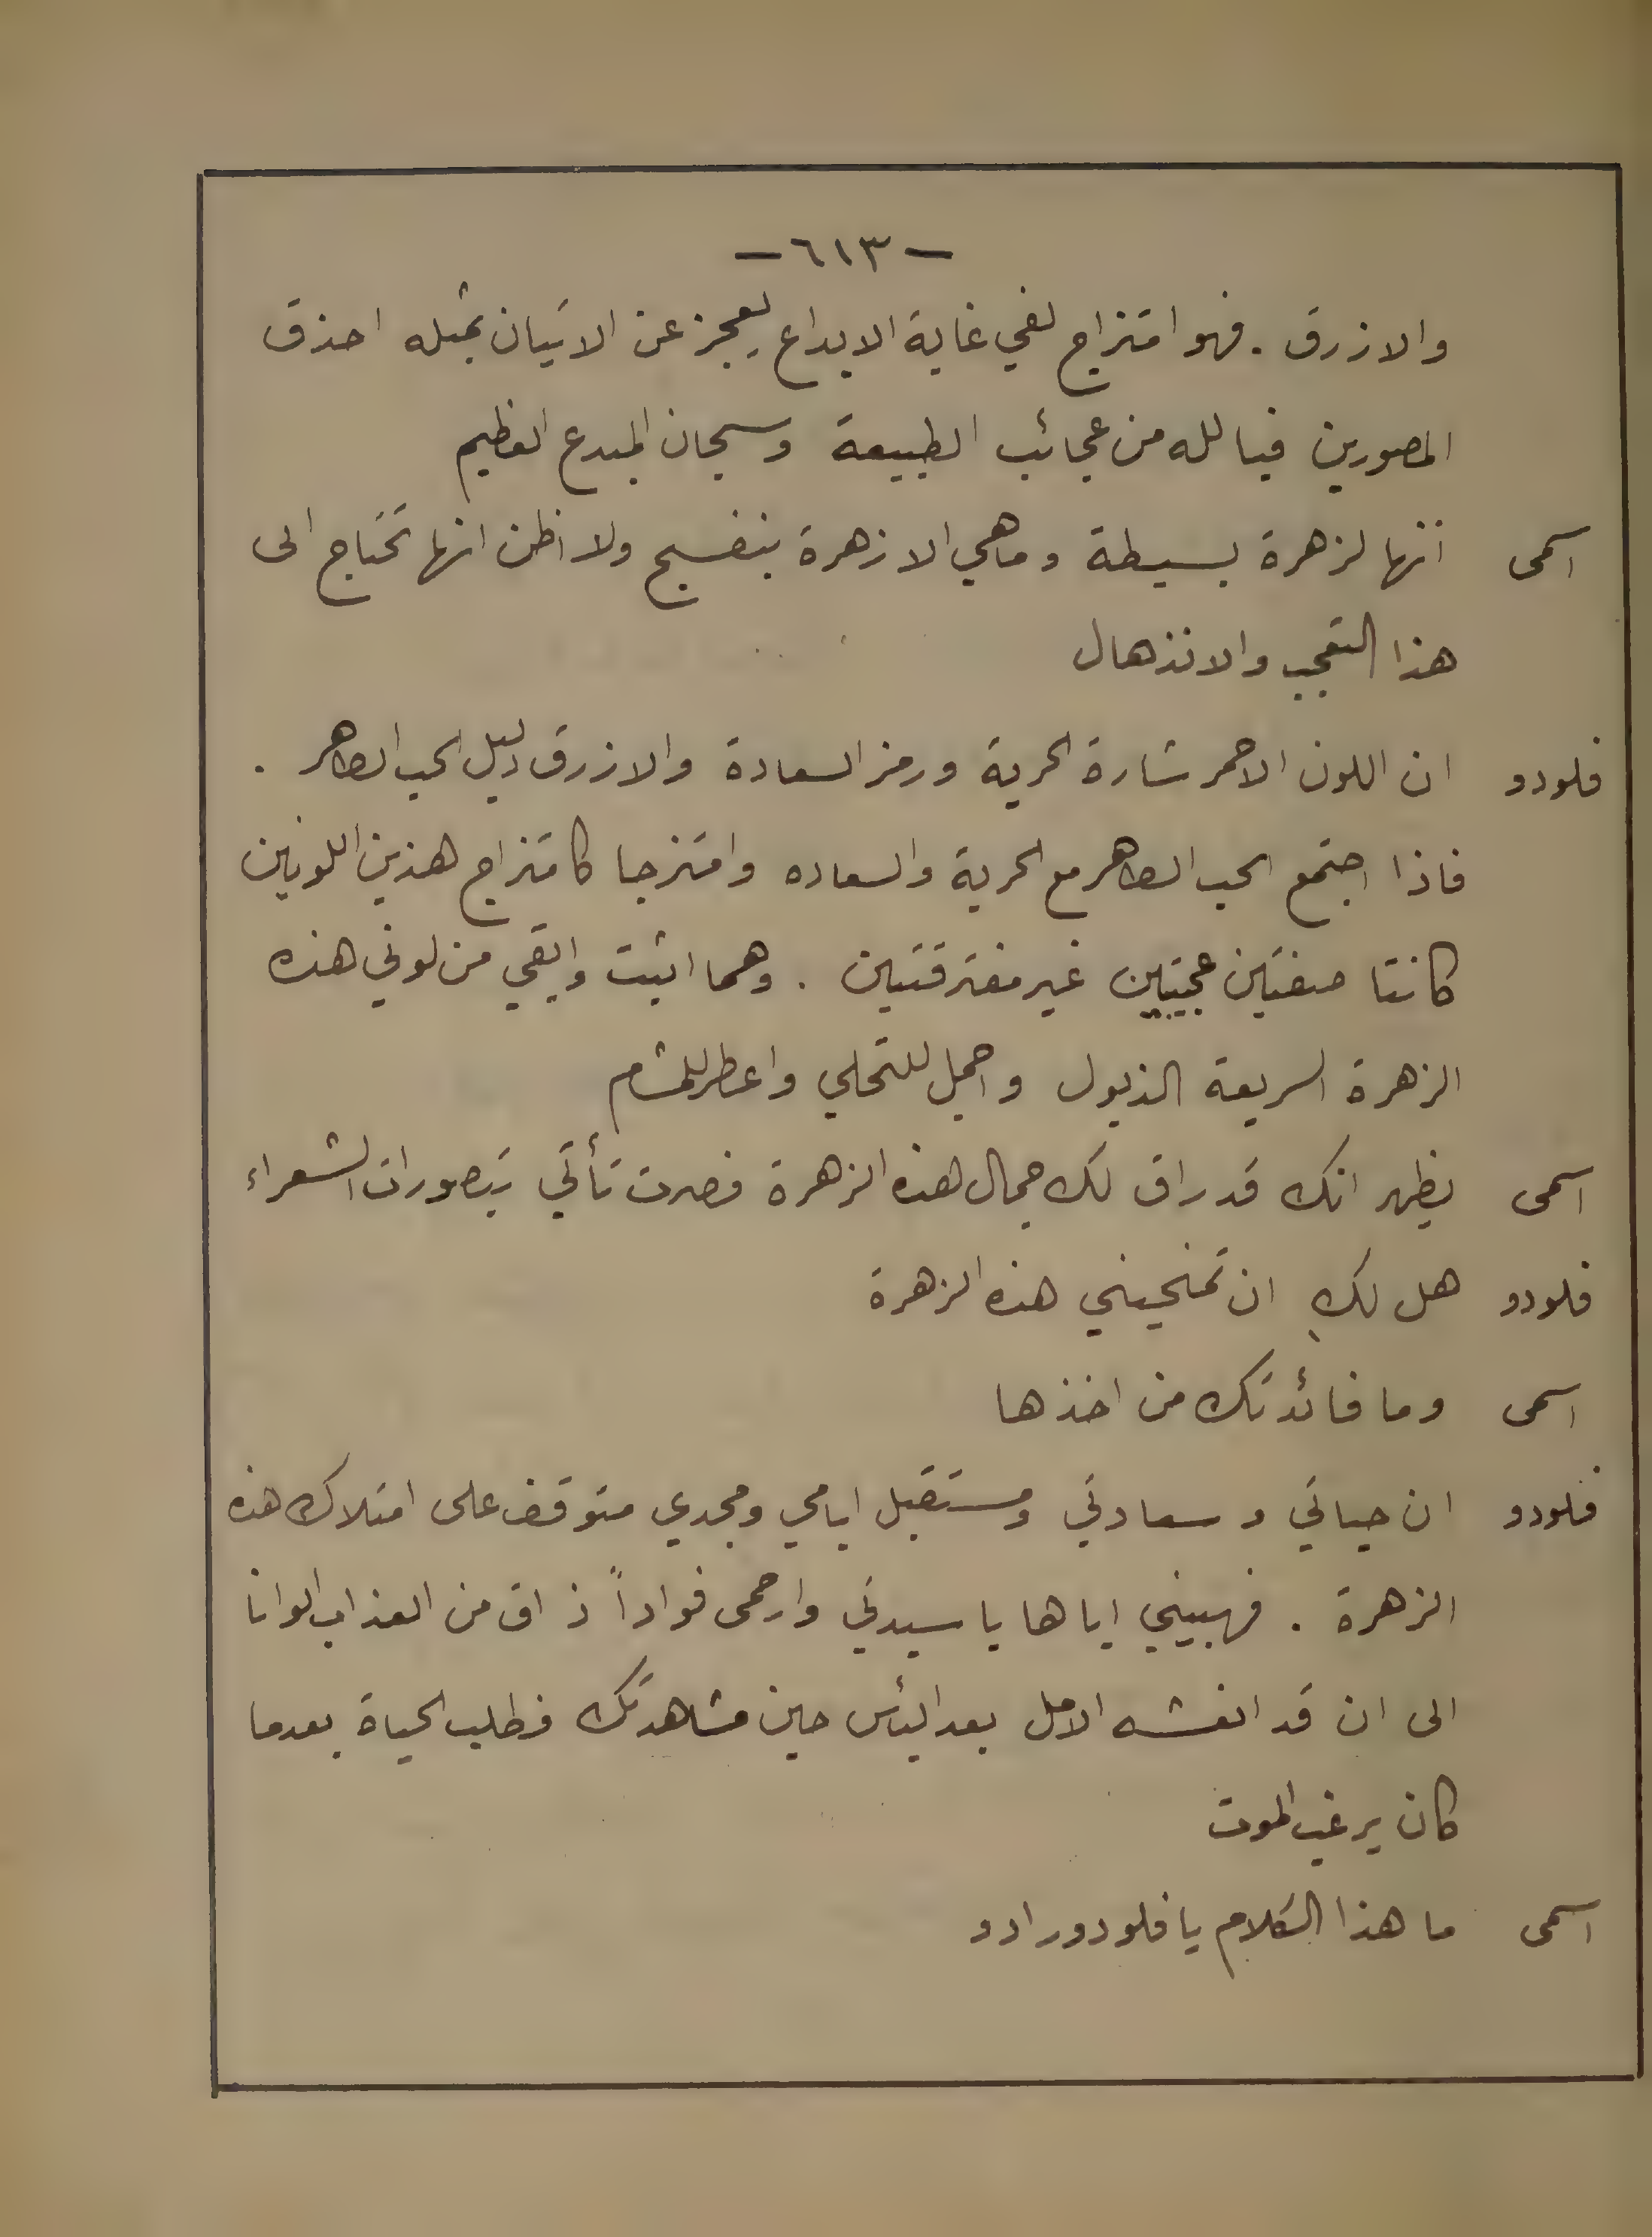 — ٦١٣ —
والازرق . فهو امتزاج لفي غاية الابداع يعجز عن الاتيان بمثله احذق
المصورين فيا لله من عجائب الطبيعة وسبحان المبدع العظيم
اسمى انها لزهرة بسيطة وما هي الا زهرة بنفسج ولا اظن انها تحتاج الى
هذا التعجب والانذهال
فلودو ان اللون الاحمر شارة الحرية ورمز السعادة والازرق دليل الحب الطاهر .
فاذا اجتمع الحب الطاهر مع الحرية والسعاده وامتزجا كامتزاج هذين اللونين
كانتا صفتين عجيبتين غير مفترقتين . وهما اثبت وابقي من لوني هذه
الزهرة السريعة الذبول واجمل للتحلي واعطر للمشام
اسمى يظهر انك قد راق لك جمال هذه الزهرة فصرت تأتي بتصورات الشعراء
فلودو هل لكِ ان تمنحيني هذه الزهرة
اسمى وما فائدتك من اخذها
فلودو ان حياتي وسعادتي ومستقبل ايامي ومجدي متوقف على امتلاك هذه
الزهرة . فهبيني اياها يا سيدتي وارحمى فواداً ذاق من العذاب الوانا
الى ان قد انعشه الامل بعد اليأس حين مشاهدتك فطلب الحياة بعدما
كان يرغب الموت
اسمى ما هذا الكلام يا فلودورادو